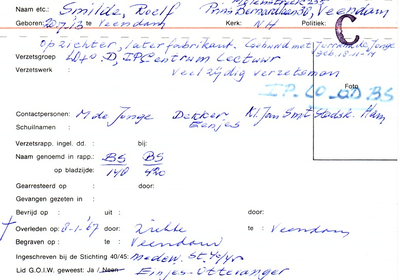 Naam etc.: Smilde, Roelf Prins Bernhardlaan 30, Veendam
Geboren: 20.7.'13 te Veendam Kerk: N.H Politiek:
C
opzichter, later fabrikant. Gehuwd met de Jonge
Verzetsgroep LO LO D, IP Centrum Lectuur
Verzetswerk : Veelzijdig verzetsman
Foto
I.P. LO _OD. BS
Contactpersonen: M de Jonge Dekker Kl. Jan Smit Stadsk. Ham
Schuilnamen : Eenjes
Verzetsrapp. ingel. dd.: bij:
Naam genoemd in rapp.: BS BS
op bladzijde: 140
Gearresteerd op : door:
Gevangen gezeten in :
Bevrijd op : uit : door:
† Overleden op : 8-1-'67 door: Ziekte te : Veendam
Begraven op : te : Veendam
Ingeschreven bij de Stichting 40/45: medew. St. 40/45
Lid G.O.I.W. geweest: Ja / Neen